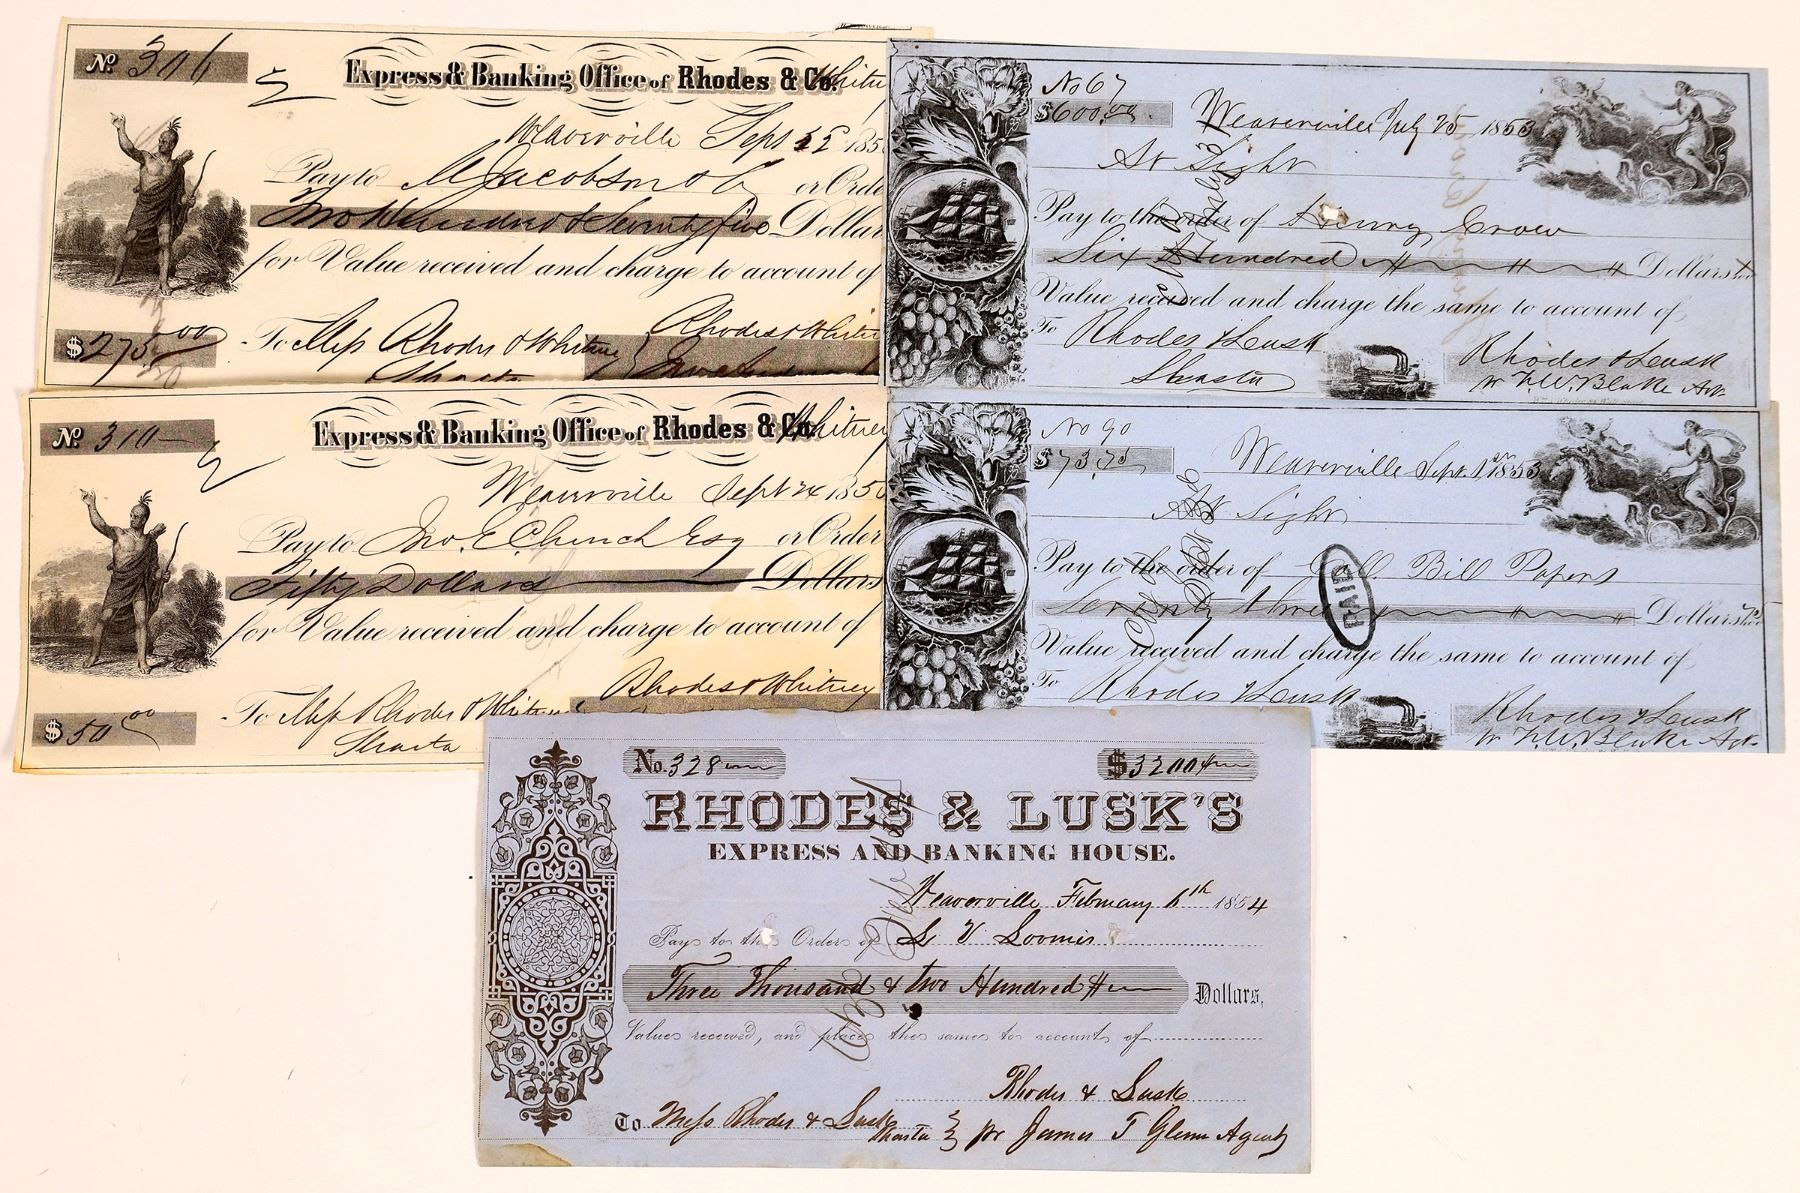 No. 306
Express & Banking Office of Rhodes & Co. Whitn
Weaverville Sept 185
Pay to M Jacobson & C or Orde
Two Hundred & Seventy five Dollar
for Value received and charge to account of
$ 275 00
To Mess Rhodes & Whitney
Rhodes & Whitn
Shasta
No. 310
Express & Banking Office of Rhodes & Co. Whitney
Weaverville Sept 24 185
Pay to Jno. E. Church Esq or Order
Fifty Dollars Dollars
for Value received and charge to account of
Rhodes & Whitney
$ 50 00
To Mess Rhodes & Whitn
Shasta
No 67
$600.00
Weaverville July 25 1853
At Sight
Pay to the order of Henry Crow
Six Hundred Dollars
Value received and charge the same to account of
To Rhodes & Lusk
Shasta
Rhodes & Lusk
pr F. W. Blake Agt
No 90
$73.75
Weaverville Sept. 1853
At Sight
Pay to the order of Bill Papers
Seventy three Dollars
PAID
Value received and charge the same to account of
To Rhodes & Lusk
Rhodes & Lusk
pr F. W. Blake Agt
No. 328
$3200
RHODES & LUSK'S
EXPRESS AND BANKING HOUSE.
Weaverville February 6th 1854
Pay to the Order of L V Loomis
Three Thousand & two Hundred Dollars,
Value received, and place the same to account of
Rhodes & Lusk
To Mess Rhodes & Lusk Shasta pr James T Glenn Agent